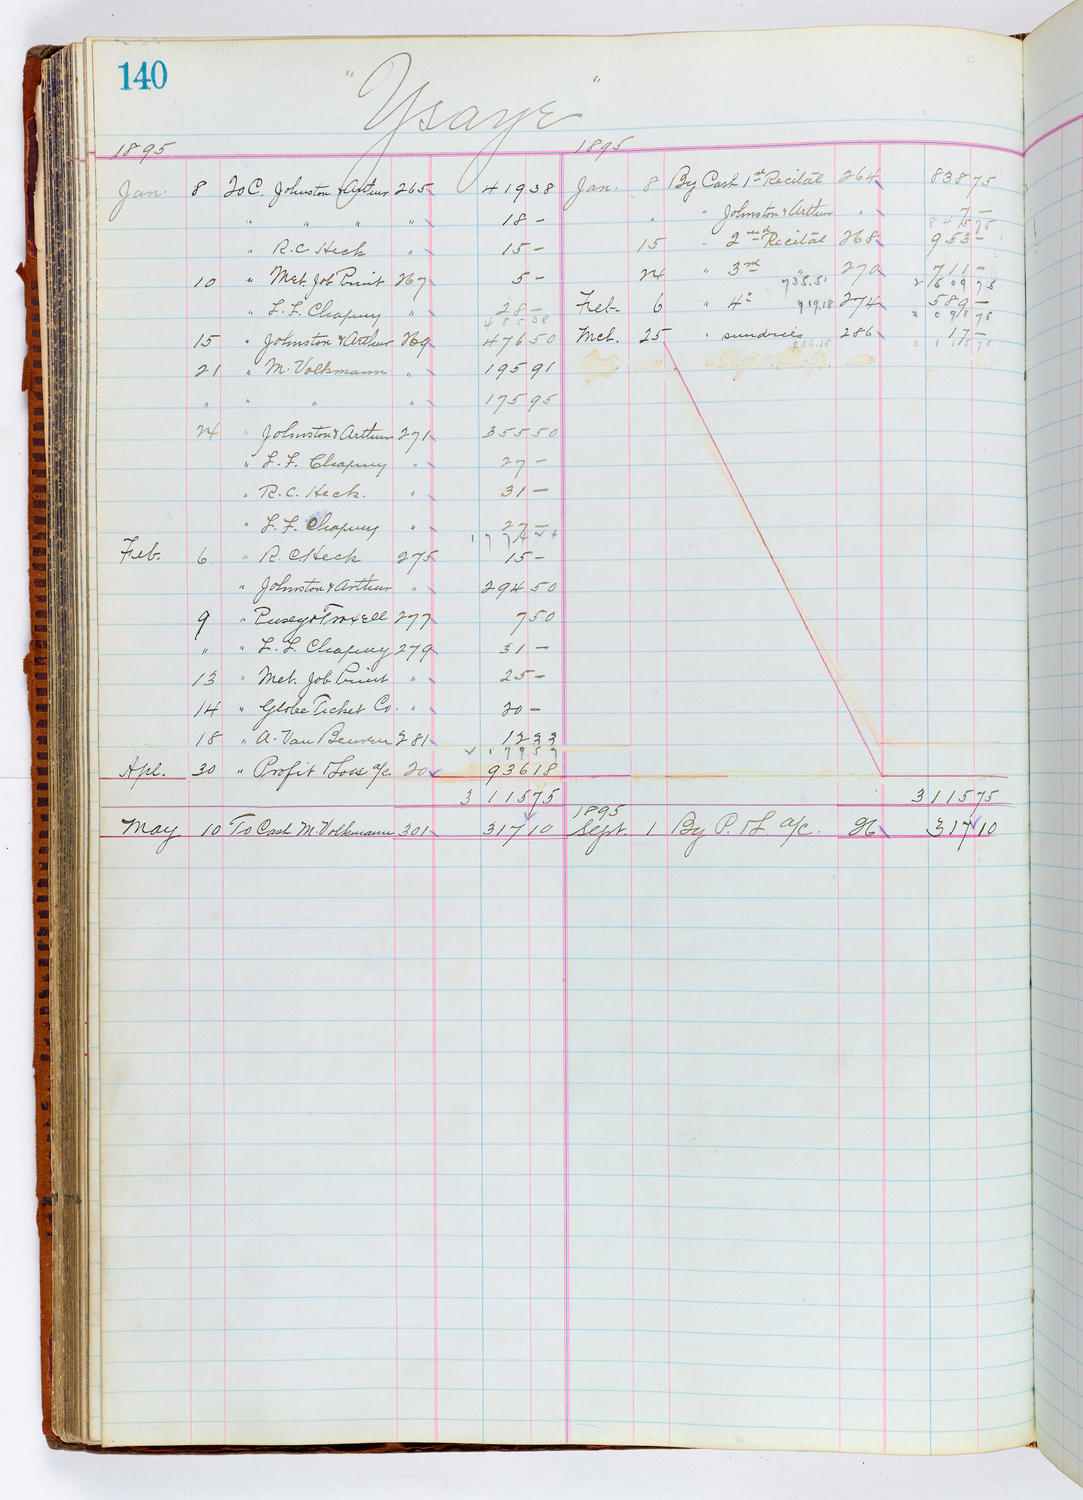 140
"Ysaye"
1895 1895
Jan. 8 To C. Johnston & Arthur 265 419 38 Jan. 8 By Cash 1st Recital 264 838 75
" " " " 18 - " " Johnston & Arthur " 7 -
845 75
" R. C. Heck " 15 - 15 " 2nd Recital 268 953 -
10 " Met. Job Print 267 5 - 24 " 3rd " 270 711 -
735.51 2509 75
" L. F. Chapuy " 28 - Feb. 6 " 4th 919.18 274 589 -
485 38 3098 75
15 " Johnston & Arthur 269 476 50 Mch. 25 " sundries 286 17 -
936.18 3115 75
21 " M. Volkmann " 195 91
" " " " 175 95
24 " Johnston & Arthur 271 355 50
" L. F. Chapuy " 27 -
" R. C. Heck. " 31 -
" L. F. Chapuy " 27 -
1774 24
Feb. 6 " R. C. Heck 275 15 -
" Johnston & Arthur " 294 50
9 " Pusey & Troxell 277 7 50
" " L. F. Chapuy 279 31 -
13 " Met. Job Print " 25 -
14 " Globe Ticket Co. " 20 -
18 " A. Van Beuren 281 12 33
2179 57
Apl. 30 " Profit & Loss a/c 20 936 18
3115 75 3115 75
1895
May 10 To Cash M. Volkmann 301 317 10 Sept. 1 By P. & L a/c. 96 317 10